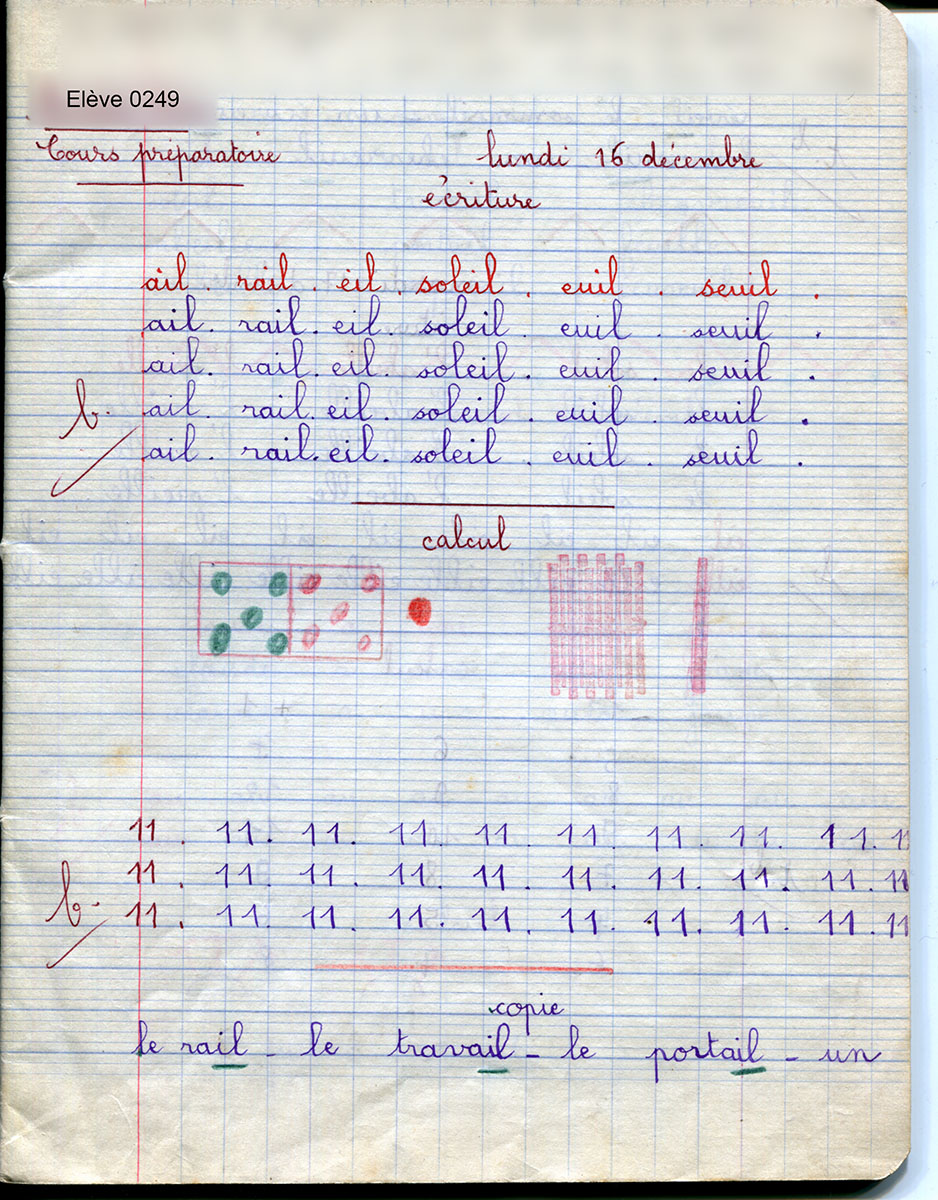 Elève 0249
Cours préparatoire lundi 16 décembre
écriture
ail . rail . eil . soleil . euil . seuil .
ail . rail . eil . soleil . euil . seuil .
ail . rail . eil . soleil . euil . seuil .
b. ail . rail . eil . soleil . euil . seuil .
ail . rail . eil . soleil . euil . seuil .
calcul
11 . 11 . 11 . 11 . 11 . 11 . 11 . 11 . 11 . 11
11 . 11 . 11 . 11 . 11 . 11 . 11 . 11 . 11 . 11
b. 11 . 11 . 11 . 11 . 11 . 11 . 11 . 11 . 11 . 11
copie
le rail - le travail - le portail - un